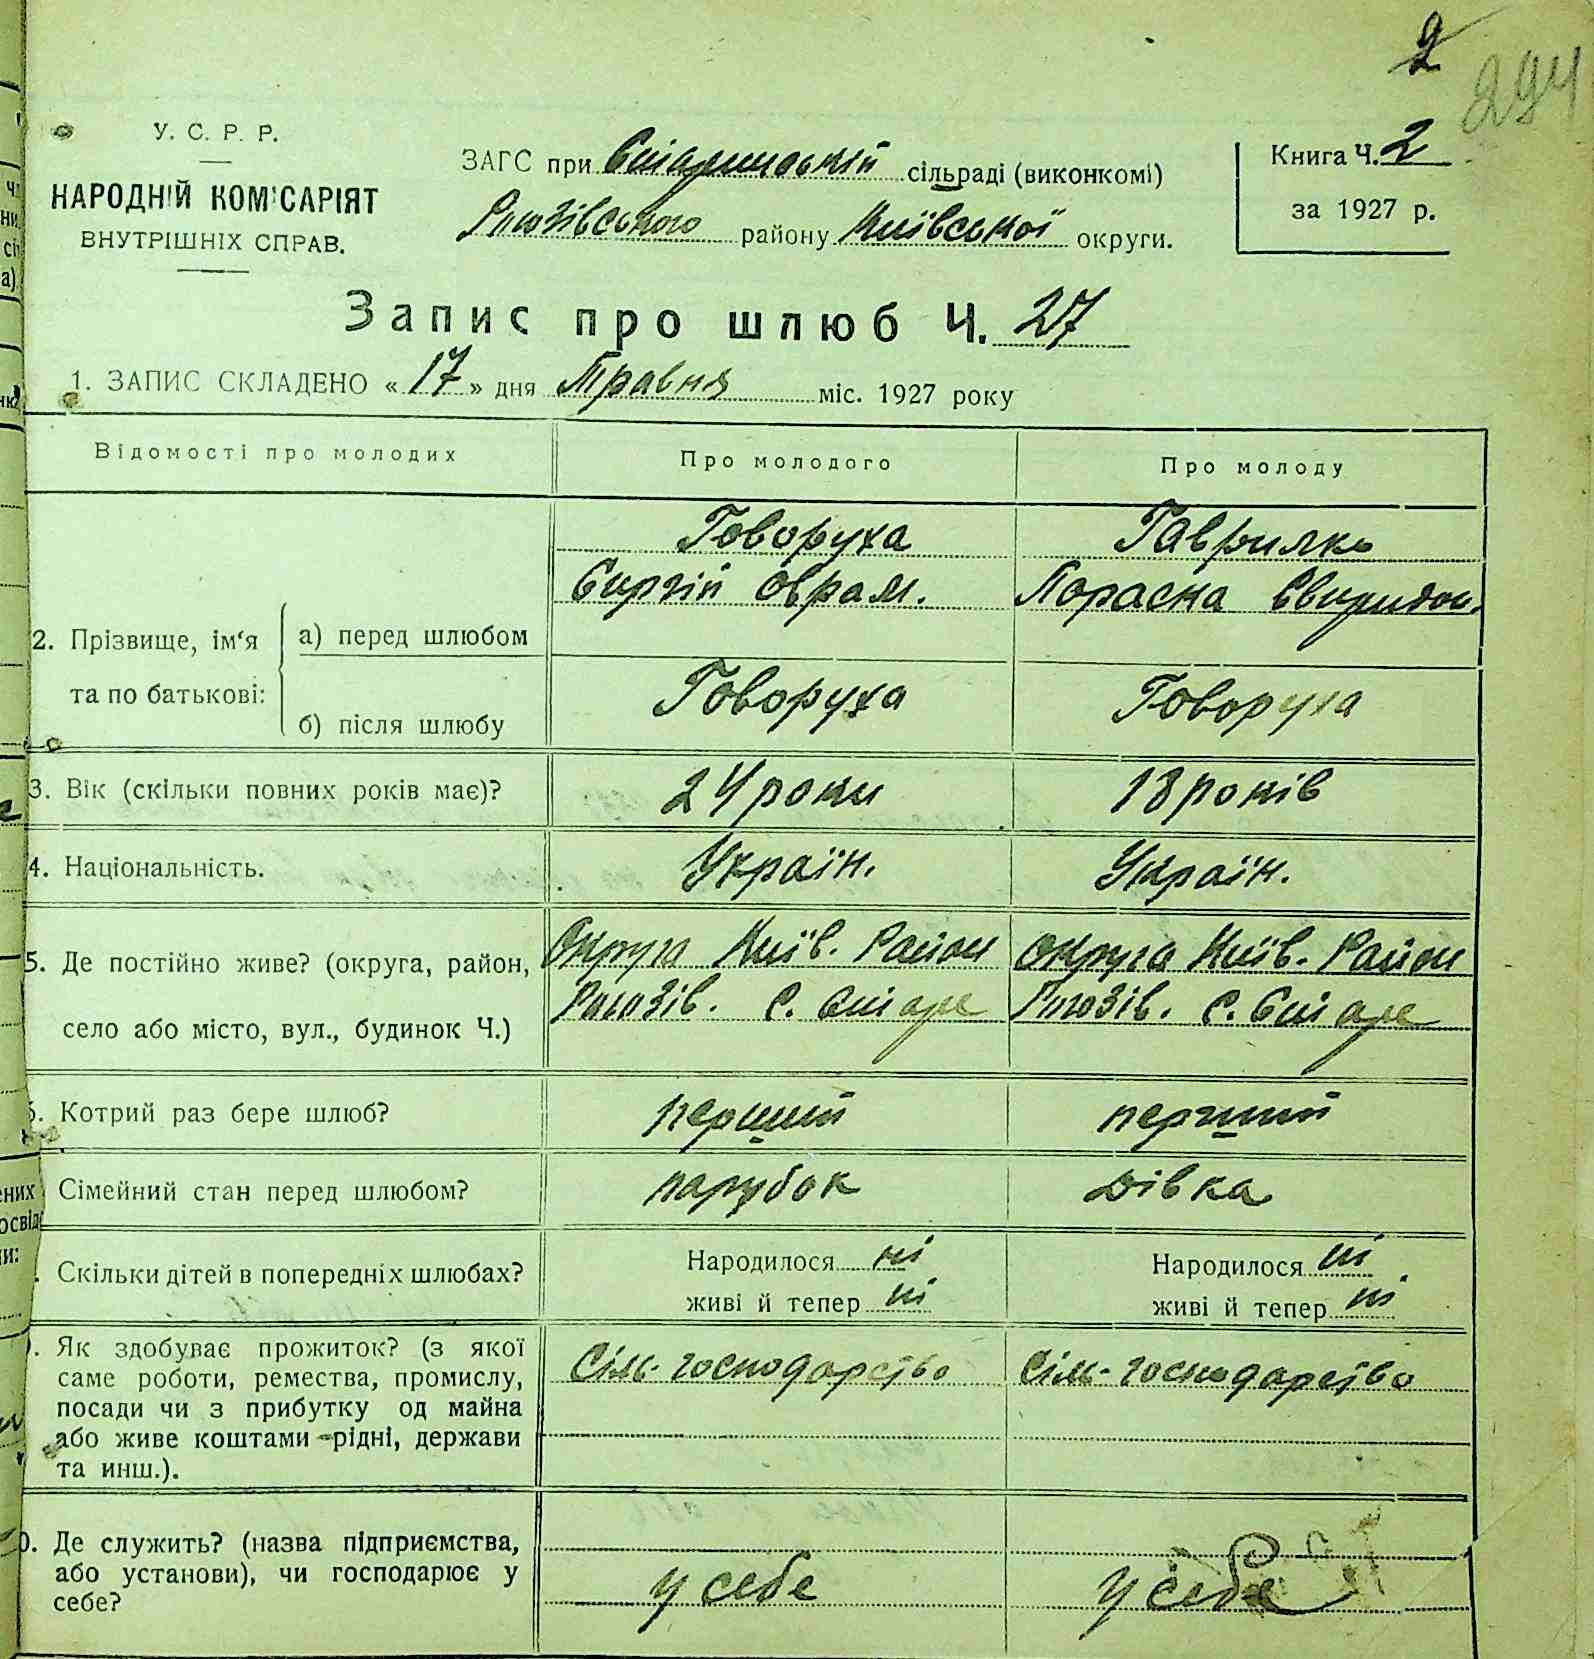 2
294
У. С. Р. Р.
НАРОДНІЙ КОМІСАРІЯТ
ВНУТРІШНІХ СПРАВ.
ЗАГС при Єніаринській сільраді (виконкомі)
Рогозівського району Київської округи.
Книга Ч. 2
за 1927 р.
Запис про шлюб Ч. 27
1. ЗАПИС СКЛАДЕНО «17» дня Травня міс. 1927 року
Відомості про молодих
Про молодого
Про молоду
2. Прізвище, ім'я та по батькові:
а) перед шлюбом
Говоруха
Сиргій Оврам.
Гаврилко
Пораска Свиридон.
б) після шлюбу
Говоруха
Говоруха
3. Вік (скільки повних років має)?
24 роки
18 років
4. Національність.
Україн.
Україн.
5. Де постійно живе? (округа, район,
село або місто, вул., будинок Ч.)
Округа Київ. Район
Рогозів. С.
Округа Київ. Район
Рогозів. С.
6. Котрий раз бере шлюб?
перший
перший
Сімейний стан перед шлюбом?
парубок
дівка
Скільки дітей в попередніх шлюбах?
Народилося ні
живі й тепер ні
Народилося ні
живі й тепер ні
Як здобуває прожиток? (з якої
саме роботи, ремества, промислу,
посади чи з прибутку од майна
або живе коштами рідні, держави
та инш.).
Сіль-господарство
Сіль-господарство
Де служить? (назва підприємства,
або установи), чи господарює у
себе?
у себе
у себе